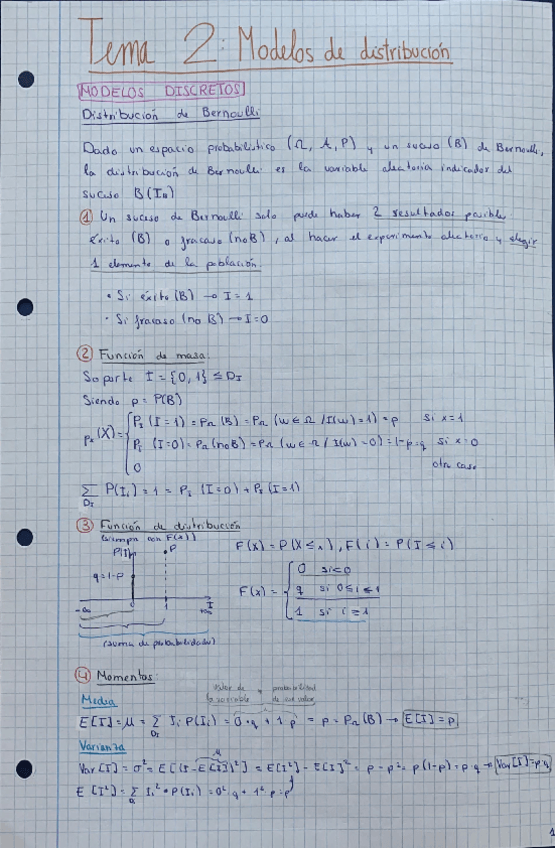 Tema 2: Modelos de distribución
MODELOS DISCRETOS
Distribución de Bernoulli
Dado un espacio probabilístico (Ω, A, P) y un suceso (B) de Bernoulli,
la distribución de Bernoulli es la variable aleatoria indicador del
suceso B (I_B)
① Un suceso de Bernoulli solo puede haber 2 resultados posibles
éxito (B) o fracaso (no B), al hacer el experimento aleatorio y elegir
1 elemento de la población.
• Si éxito (B) → I = 1
• Si fracaso (no B) → I = 0
② Función de masa:
Soporte I = {0, 1} ≤ D_I
Siendo p = P(B)
P_I (I=1) = P_Ω (B) = P_Ω (w ∈ Ω / I(w) = 1) = p si x = 1
p_x (X) = P_I (I=0) = P_Ω (no B) = P_Ω (w ∈ Ω / I(w) = 0) = 1-p = q si x = 0
0 otro caso
∑ P(I_i) = 1 = P_I (I=0) + P_I (I=1)
D_I
③ Función de distribución
(siempre con F(x))
P(I) p F(x) = P(X ≤ x), F(i) = P(I ≤ i)
q = 1-p
0 si < 0
F(x) = q si 0 ≤ i ≤ 1
1 si i ≥ 1
-∞ 0 I
(suma de probabilidades)
④ Momentos:
valor de la variable • probabilidad de ese valor
Media
E[I] = μ = ∑ I_i P(I_i) = 0·q + 1·p = p = P_Ω (B) → E[I] = p
D_I
Varianza
μ
Var[I] = σ² = E[(I - E[I])²] = E[I²] - E[I]² = p - p² = p(1-p) = p·q → Var[I] = p·q
E[I²] = ∑ I_i² • P(I_i) = 0²·q + 1²·p = p
1